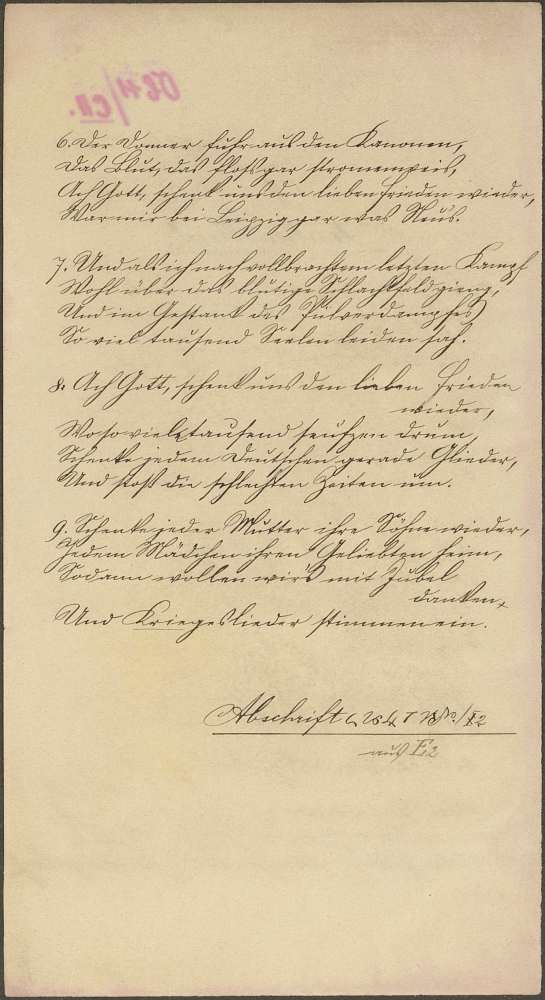 6. Der Donner fuhr aus den Kanonen,
Das Blut, das floß gar stromenweis,
Ach Gott, schenk uns den lieben Frieden wieder,
War mir bei Leipzig gar was Neus.
7. Und als ich nach vollbrachtem letzten Kampf
Wohl über das blutige Schlachtfeld gieng,
Und im Gestank des Pulverdampfes
So viel tausend Seelen leiden sah.
8. Ach Gott, schenk uns den lieben Frieden
wieder,
Wo so viel tausend seufzen drum,
Schenke jedem Deutschen gerade Glieder,
Und stoß die schlechten Zeiten um.
9. Schenke jeder Mutter ihre Söhne wieder,
Jedem Mädchen ihren Geliebten heim,
Sodann wollen wir's mit Jubel
danken,
Und Kriegeslieder stimmen ein.
Abschrift
aus E2